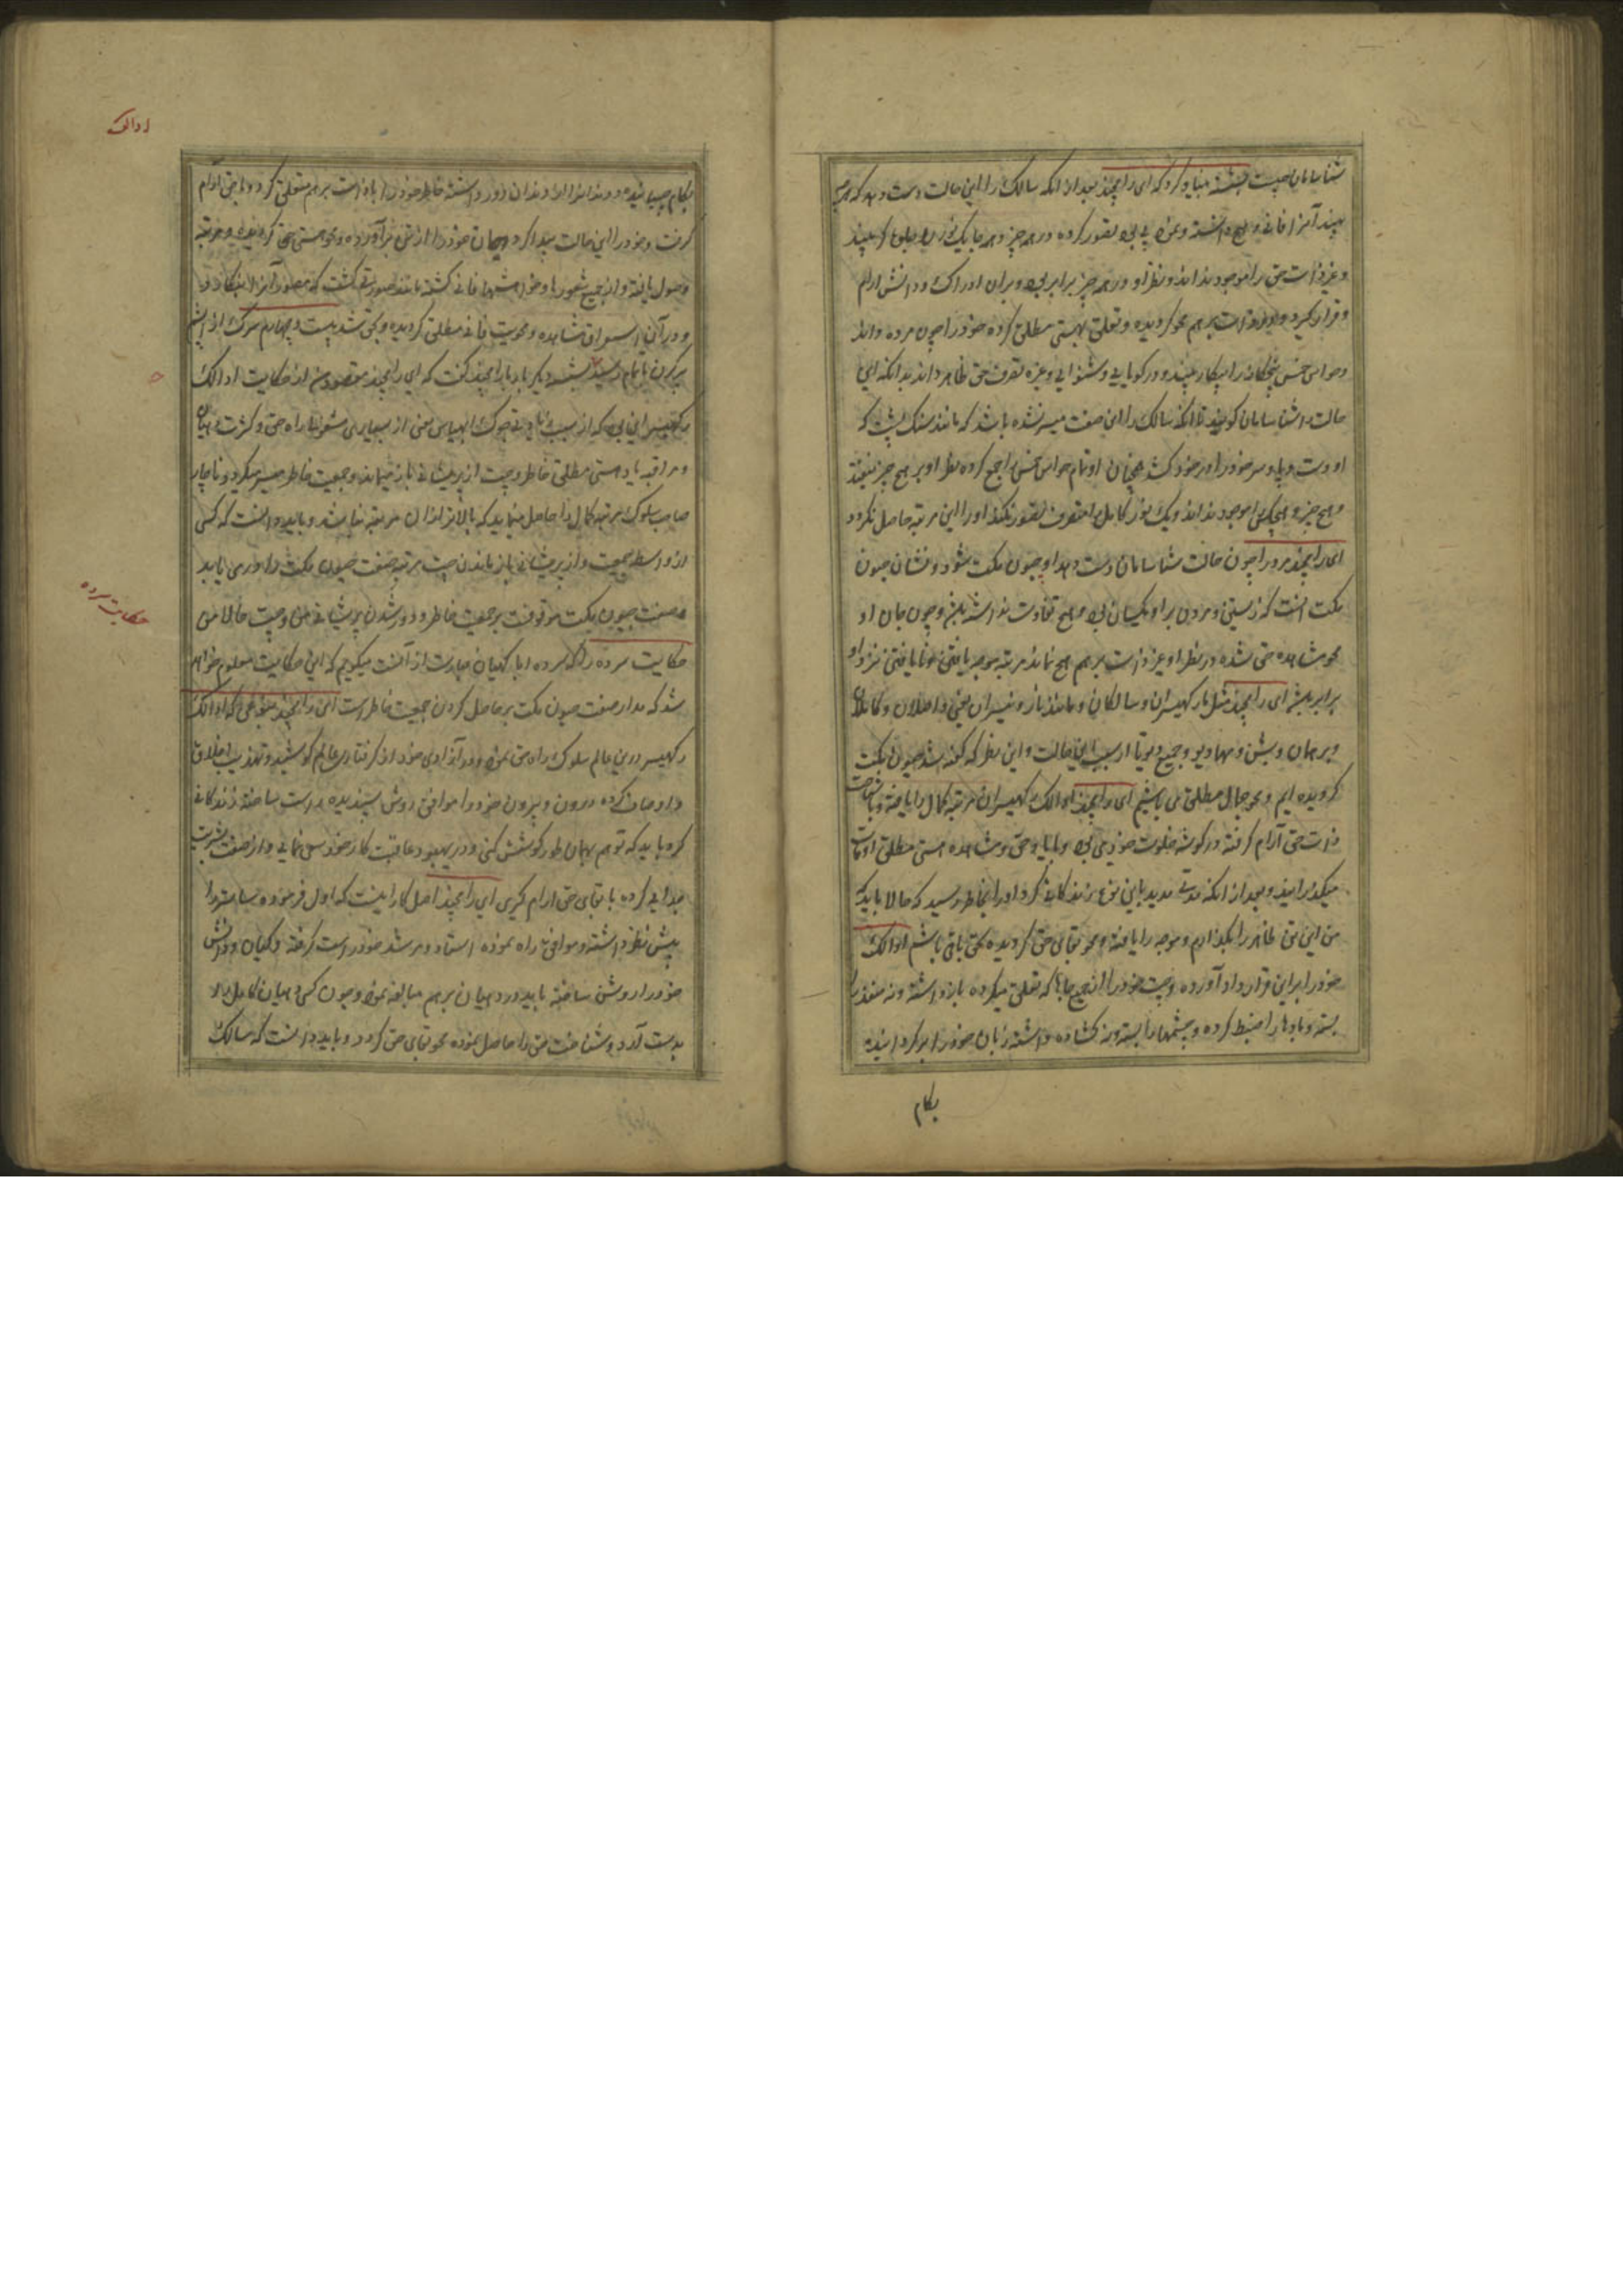 شناسامان چیست بششته بنیاد کرد که ای رامچند بعد از انکه سالک را این حالت دست دهد که هر چه
بیند آنرا فانی و هیچ دانسته و عین بی بی تصور کرده در همه چیز و همه جا یک نور
و غیر ذات حق را موجود نداند و نظر او در همه چیز برابر بود و بران ادراک و دانش ارام
و قرار گیرد و در ذات برهم محو گردیده و تعلق بهستی مطلق کرده خود را چون مرده داند
و حواس خمس پنجگانه را بیکار بیند و در گویایی و شنوایی و غیره تصرف حق ظاهر داند بدانکه این
حالت را شناسامان گویند تا انکه سالک را این صفت میسر نشده باشد که مانند سنگ پشت که
او دست و پا و سر خود را در خود کشد همچنان او تمام حواس خمس را جمع کرده نظر او بر هیچ چیز نیفتد
و هیچ چیز و هیچ یکی را موجود نداند و یک نور کامل را متصرف تصور نکند او را این مرتبه حاصل نگردد
ای رامچند مرد را چون حالت شناسامان دست دهد او جیون مکت شود و نشان جیون
مکت انست که زیستن و مردن بر او یکسان بود و هیچ تفاوت نداشته باشد و چون جان او
محو مشاهده حق شده در نظر او غیر ذات برهم هیچ نماند مرتبه موجه یافتن و نایافتن نزد او
برابر باشد ای رامچند مثل بارکهیسران و سالکان و مانند نارد و نیسران یعنی واصلان و کاملان
و برهمان و بشن و مهادیو و جمیع دیوتا از سبب این حالت و این نظر که گفته شد جیون مکت
گردیده ایم و محو جمال مطلق می باشیم ای رامچند ادالک رکهیسران مرتبه کمال را یافته و با شناخت
ذات حق آرام گرفته در گوشه خلوت خود می بود و با یاد حق و مشاهده هستی مطلق اوقات
میگذرانید و بعد از انکه مدتی مدید باین نوع زندگانی کرد او را بخاطر رسید که حالا باید که
من این تن ظاهر را بگذارم و موجه را یافته و محو بقای حق گردیده بحق باقی باشم ادالک
خود را بر این قرار داد آورده و چیت خود را از جمیع جاها که تعلق میکرده باز داشته و نه منفذ را
بسته و بادها را ضبط کرده و چشمها را بسته و نه گشاده داشته زبان خود را برگردانیده
بکام
ادالک
بکام چسپانیده و دندانرا از دندان دور داشته خاطر خود را با ذات برهم متعلق کرد و با حق آرام
گرفت و خود را این حالت پیدا کرد و همان خود را از تن برآورده و محو هستی حق گردیده و مرتبه
وصول یافته و از جمیع شعورها و خواهشها فانی گشته مانند صورتی گشت که مصور آنرا بنگارد
و در آن استغراق مشاهده و محویت فانی مطلق گردیده و بحق شد بیست و چهارم سرگ از اپشم
پرکرن باتمام رسید بششته دیگر بار با رامچند گفت که ای رامچند مقصود من از حکایت ادالک
رکهیسر این بود که از سبب
و مراقبه یاد هستی مطلق خاطر و چیت از پریشانی باز میماند و جمعیت خاطر میسر میگردد و ناچار
صاحب سلوک مرتبه کمال را حاصل مینماید که بالاتر از ان مرتبه نباشد و باید دانست که کسی
از واسطه جمعیت و از پریشانی باز ماندن چیت مرتبه صفت جیون مکت را در می یابد
و صفت جیون مکت موقوفست بر جمعیت خاطر و دور شدن پریشانی من و چیت حالا من
حکایت سرده
حکایت سرده را که سرده راجا کهیان عبارت از انست میگویم که از این حکایت معلوم خواهد
شد که مدار صفت جیون مکت بر حاصل کردن جمعیت خاطر است ای رامچند بنوعی که ادالک
رکهیسر در این عالم سلوک راه حق نمود و در آزادی خود از گرفتاری عالم کوشید و تهذیب اخلاق
و اوصاف کرده درون و بیرون خود را موافق روش پسندیده راست ساخته زندگانی
کرد باید که تو هم بهمان طور کوشش کنی و در بهبود عاقبت کار خود سعی نمایی و از صفت بشریت
جدایی کرده با بقای حق ارام گیری ای رامچند اصل کار اینست که اول فرموده شاستر را
پیش نظر داشته و موافق راه نموده استاد و مرشد خود راست گرفته و گیان و دانش
خود را روشن ساخته باید در دهیان برهم مبالغه نمود و چون کسی دهیان کامل را
بدست آرد و شناخت حق را حاصل نموده محو بقای حق گردد و باید دانست که سالک